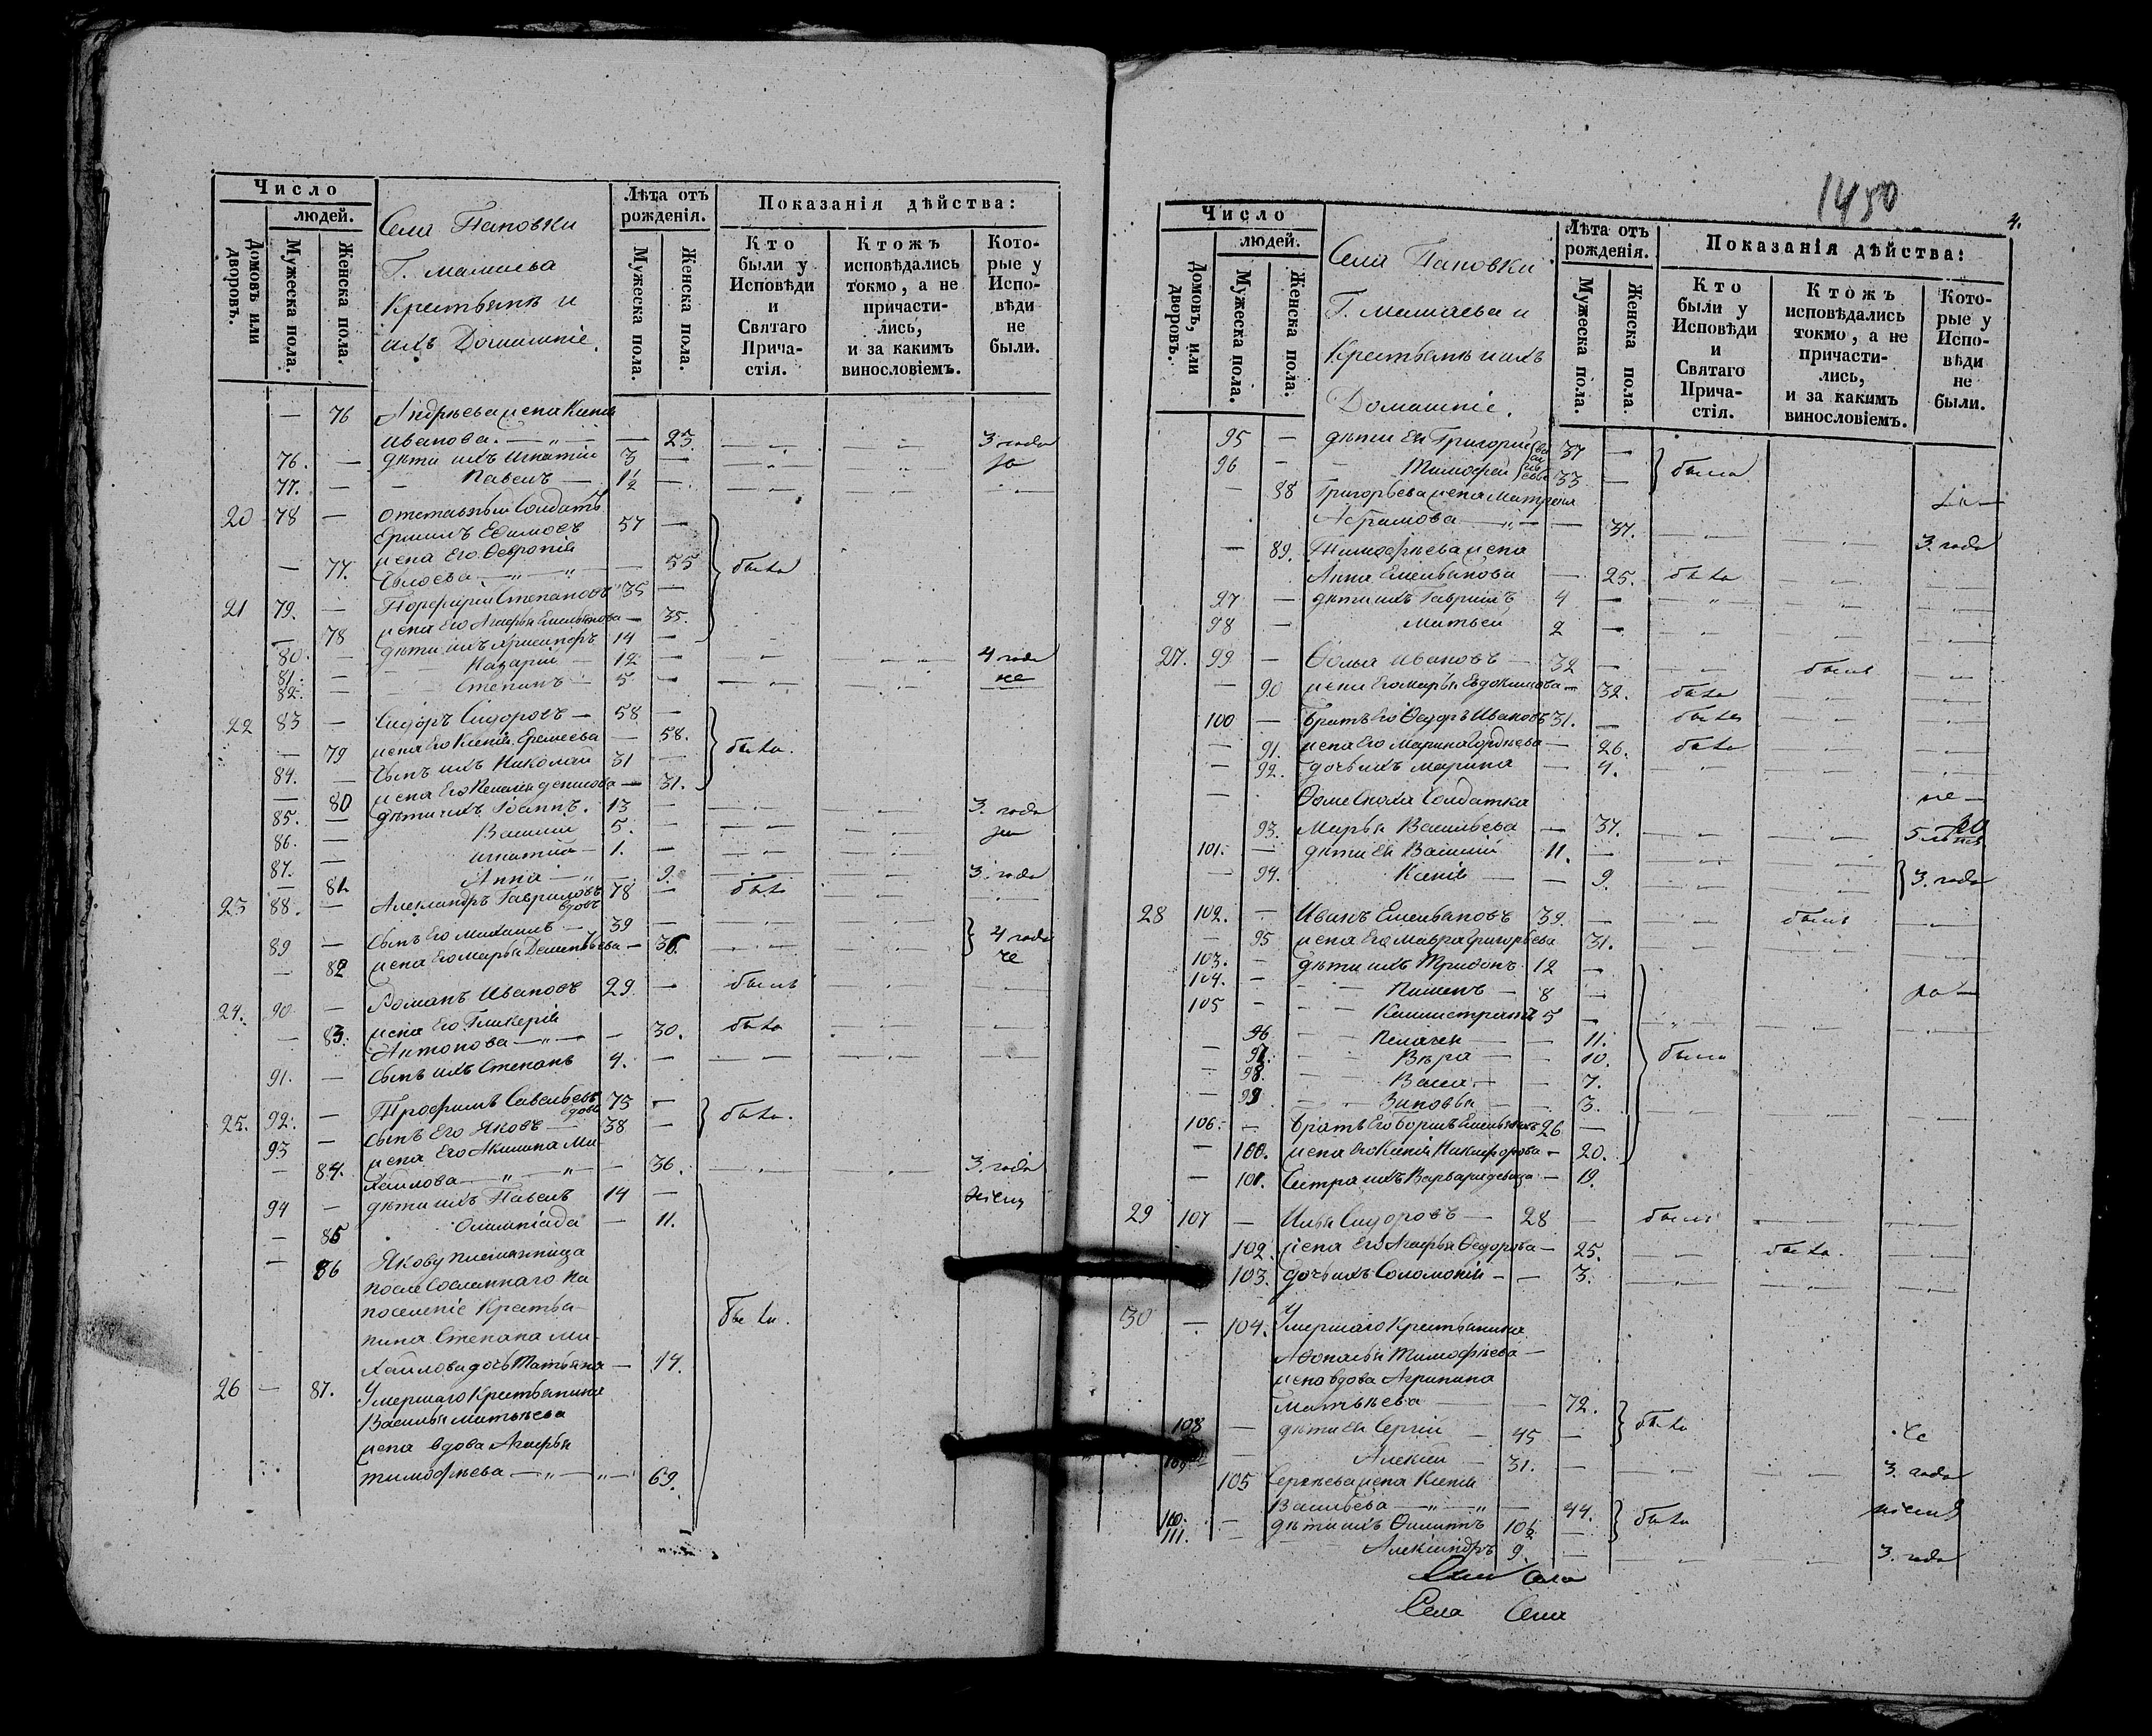 Число
людей.
Домовъ или дворовъ.
Мужеска пола.
Женска пола.
Села Паповки
Г. Мамаева
Крестьянѣ и
ихъ Домашніе.
Лѣта отъ рожденія.
Мужеска пола.
Женска пола.
Показанія дѣйства:
Кто были у Исповѣди и Святаго Причастія.
Ктожъ исповѣдались токмо, а не причастились, и за какимъ винословіемъ.
Которые у Исповѣди не были.
— 76 Андрѣева жена Ксенія
Иванова — „ — — 23. 3 года
76. — дѣти ихъ Игнатій 3 —
77. — — Павелъ — 1½ —
20 78 — Отставный Солдатъ
Ермилъ Ефимовъ 57 —
— 77. жена Его Ѳевронія
— „ — „ — 55 была
21 79. — Порфирій Степановъ 35 —
— 78 жена Его Агафья Емельянова — 35.
80. — дѣти ихъ Христофоръ 14 —
81. — — Назарій — 12 — 4 года
82. — — Степанъ — 5 —
22 83 — Сидоръ Сидоровъ — 58 —
— 79 жена Его Ксенія Еремеева — 58. была.
84. — Сынъ ихъ Николай 31 —
— 80 жена Его Ксенія Денисова — 31.
85. — дѣти ихъ Іоаннъ. 13 — 3. года
86. — Василій 5. —
87. — Игнатій — 1. —
— 81 Анна — „ — 9. 3. года
23 88. — Александръ Гавриловъ 78 — былъ
вдовъ
89 — Сынъ Его Михаилъ — 39 — 4 года
— 82 жена Его Марья Дементьева — 36.
24. 90 — Романъ Ивановъ 29 — былъ
— 83. жена Его Гликерія
Антонова — „ — — 30. была
91. — Сынъ ихъ Степанъ 4. —
25. 92. — Трофимъ Савельевъ 75 — была.
вдовъ
93 — Сынъ Его Яковъ — 38 —
— 84. жена Его Акилина Ми-
хайлова — „ — „ — 36. 3. года
94 — дѣти ихъ Павелъ 14 —
— 85 Олимпіада — 11.
— 86 Якову племянница
после Сосланнаго на
поселеніе Крестья-
нина Степана Ми-
хайлова дочь Татьяна — 14. была.
26 — 87. Умершаго Крестьянина
Василья Матвѣева
жена вдова Агафья
Тимофѣева — „ — „ — 69.
1450
4.
Число
людей.
Домовъ, или дворовъ.
Мужеска пола.
Женска пола.
Села Паповки
Г. Мамаева и
Крестьянѣ и ихъ
Домашніе.
Лѣта отъ рожденія.
Мужеска пола.
Женска пола.
Показанія дѣйства:
Кто были у Исповѣди и Святаго Причастія.
Ктожъ исповѣдались токмо, а не причастились, и за какимъ винословіемъ.
Которые у Исповѣди не были.
95 — дѣти Ея Григорій 37 —
96 — — Тимофей 33 — были
— 88 Григорьева жена Матрона
Абрамова — „ — — 37. 3. года
— 89. Тимофѣева жена
Анна Емельянова — 25. была
97 — дѣти ихъ Гавріилъ 4 —
98 — Матвей 2 —
27. 99 — Ѳома Ивановъ — 32 — былъ
— 90 жена Его Марья Евдокимова — 32. была
100 — Братъ Его Ѳедоръ Ивановъ 31. — былъ
— 91. жена Его Марина Гордѣева — 26. была
— 92. дочь ихъ Марина — 4.
— Ѳоме Сноха Солдатка
93. Марья Васильева — 37. 5
101. — дѣти Ея Василій 11. —
— 94. Ксенія — — 9. 3. года
28 102. — Иванъ Емельяновъ 39. — былъ
— 95 жена Его Мавра Григорьева 31.
103. — дѣти ихъ Тридонъ 12 —
104. — — Пименъ — 8 —
105 — — Каллистратъ 5 —
96 — Пелагея — — 11.
— 97. — Вѣра — — 10. были
— 98. — Васса — — 7.
— 99 — Зиновья — — 3.
106. — Братъ Его Борисъ Емельяновъ 26 —
— 100. жена Его Ксенія Никифорова — 20.
— 101. Сестра ихъ Варвара девица — 19.
29 107 — Илья Сидоровъ — 28 — былъ
102. жена Его Агафья Ѳедорова — 25. была.
103. дочь ихъ Соломонія — — 3.
30 — 104. Умершаго Крестьянина
Аѳонасья Тимофѣева —
жена вдова Агрипина
Матвѣева — — 72.
108 — дѣти Ея Сергій — 45 — была
— Алексій — 31. — 3. года
105 Сергѣева жена Ксенія
Васильева — „ — „ — 44.
110. — дѣти ихъ Филипъ 10½ — была
111. — Александръ 9. — 3. года
Села
Села